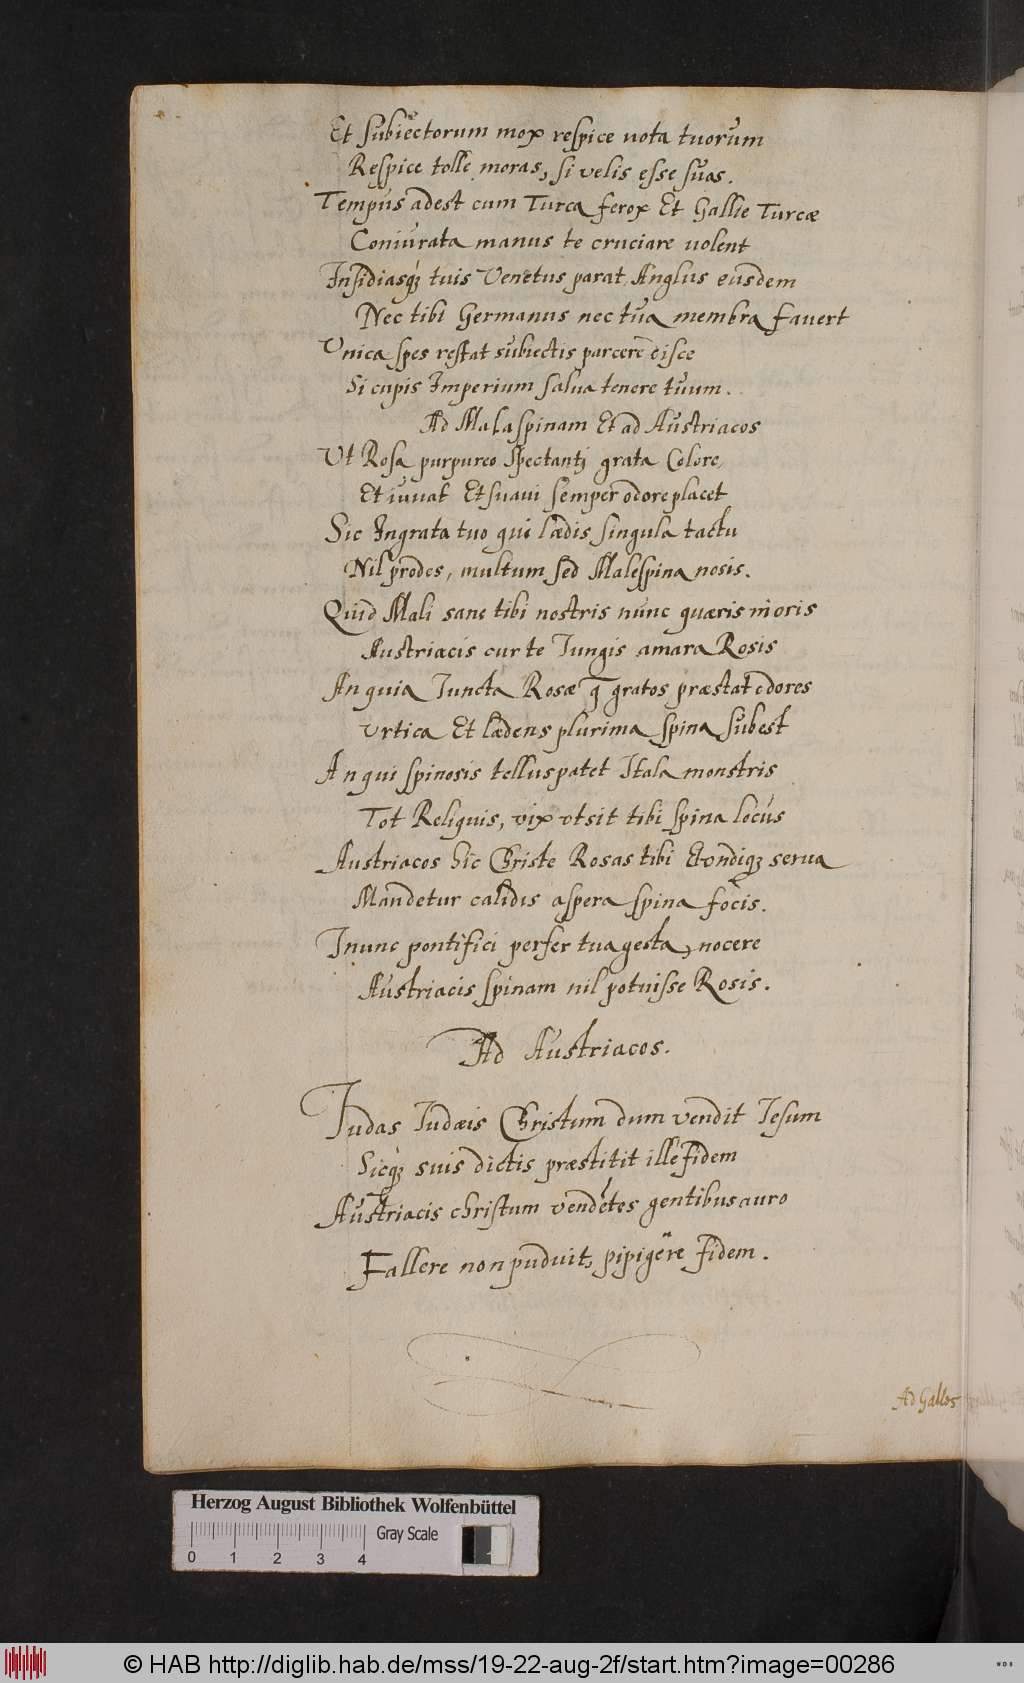 Et subiectorum mox respice uota tuorum
Respice tolle moras, si velis esse suas.
Tempus adest cum Turca ferox Et Gallie Turcæ
Coniurata manus te cruciare uolent
Insidiasq; tuis Venetus parat Anglus eusdem
Nec tibi Germanus nec tua membra fauert
Unica spes restat subiectis parcere disce
Si cupis Imperium salua tenere tuum.
Ad Malaspinam Et ad Austriacos
Ut Rosa purpureo Spectanti grata Colore,
Et iuuat Et suaui semper odore placet
Sic Ingrata tuo qui lædis singula tactu
Nil prodes, multum sed Malespina nosis.
Quid Mali sane tibi nostris nunc quæris in oris
Austriacis cur te Iungis amara Rosis
An quia Iuncta Rosæ q gratos præstat odores
Vrtica Et lædens plurima spina subest
An qui spinosis tellus patet Itala monstris
Tot Reliquis, vix vt sit tibi spina locus
Austriacos hic Christe Rosas tibi Et ondiq; serua
Mandetur calidis aspera spina focis.
I nunc pontifici perfer tua gesta, nocere
Austriacis spinam nil potuisse Rosis.
Ad Austriacos.
Iudas Iudæis Christum dum vendit Iesum
Sicq; suis dictis præstitit ille fidem
Austriacis christum vendétes gentibus auro
Fallere non puduit, pipigëre fidem.
Ad Gallos
Herzog August Bibliothek Wolfenbüttel
Gray Scale
0 1 2 3 4
© HAB http://diglib.hab.de/mss/19-22-aug-2f/start.htm?image=00286